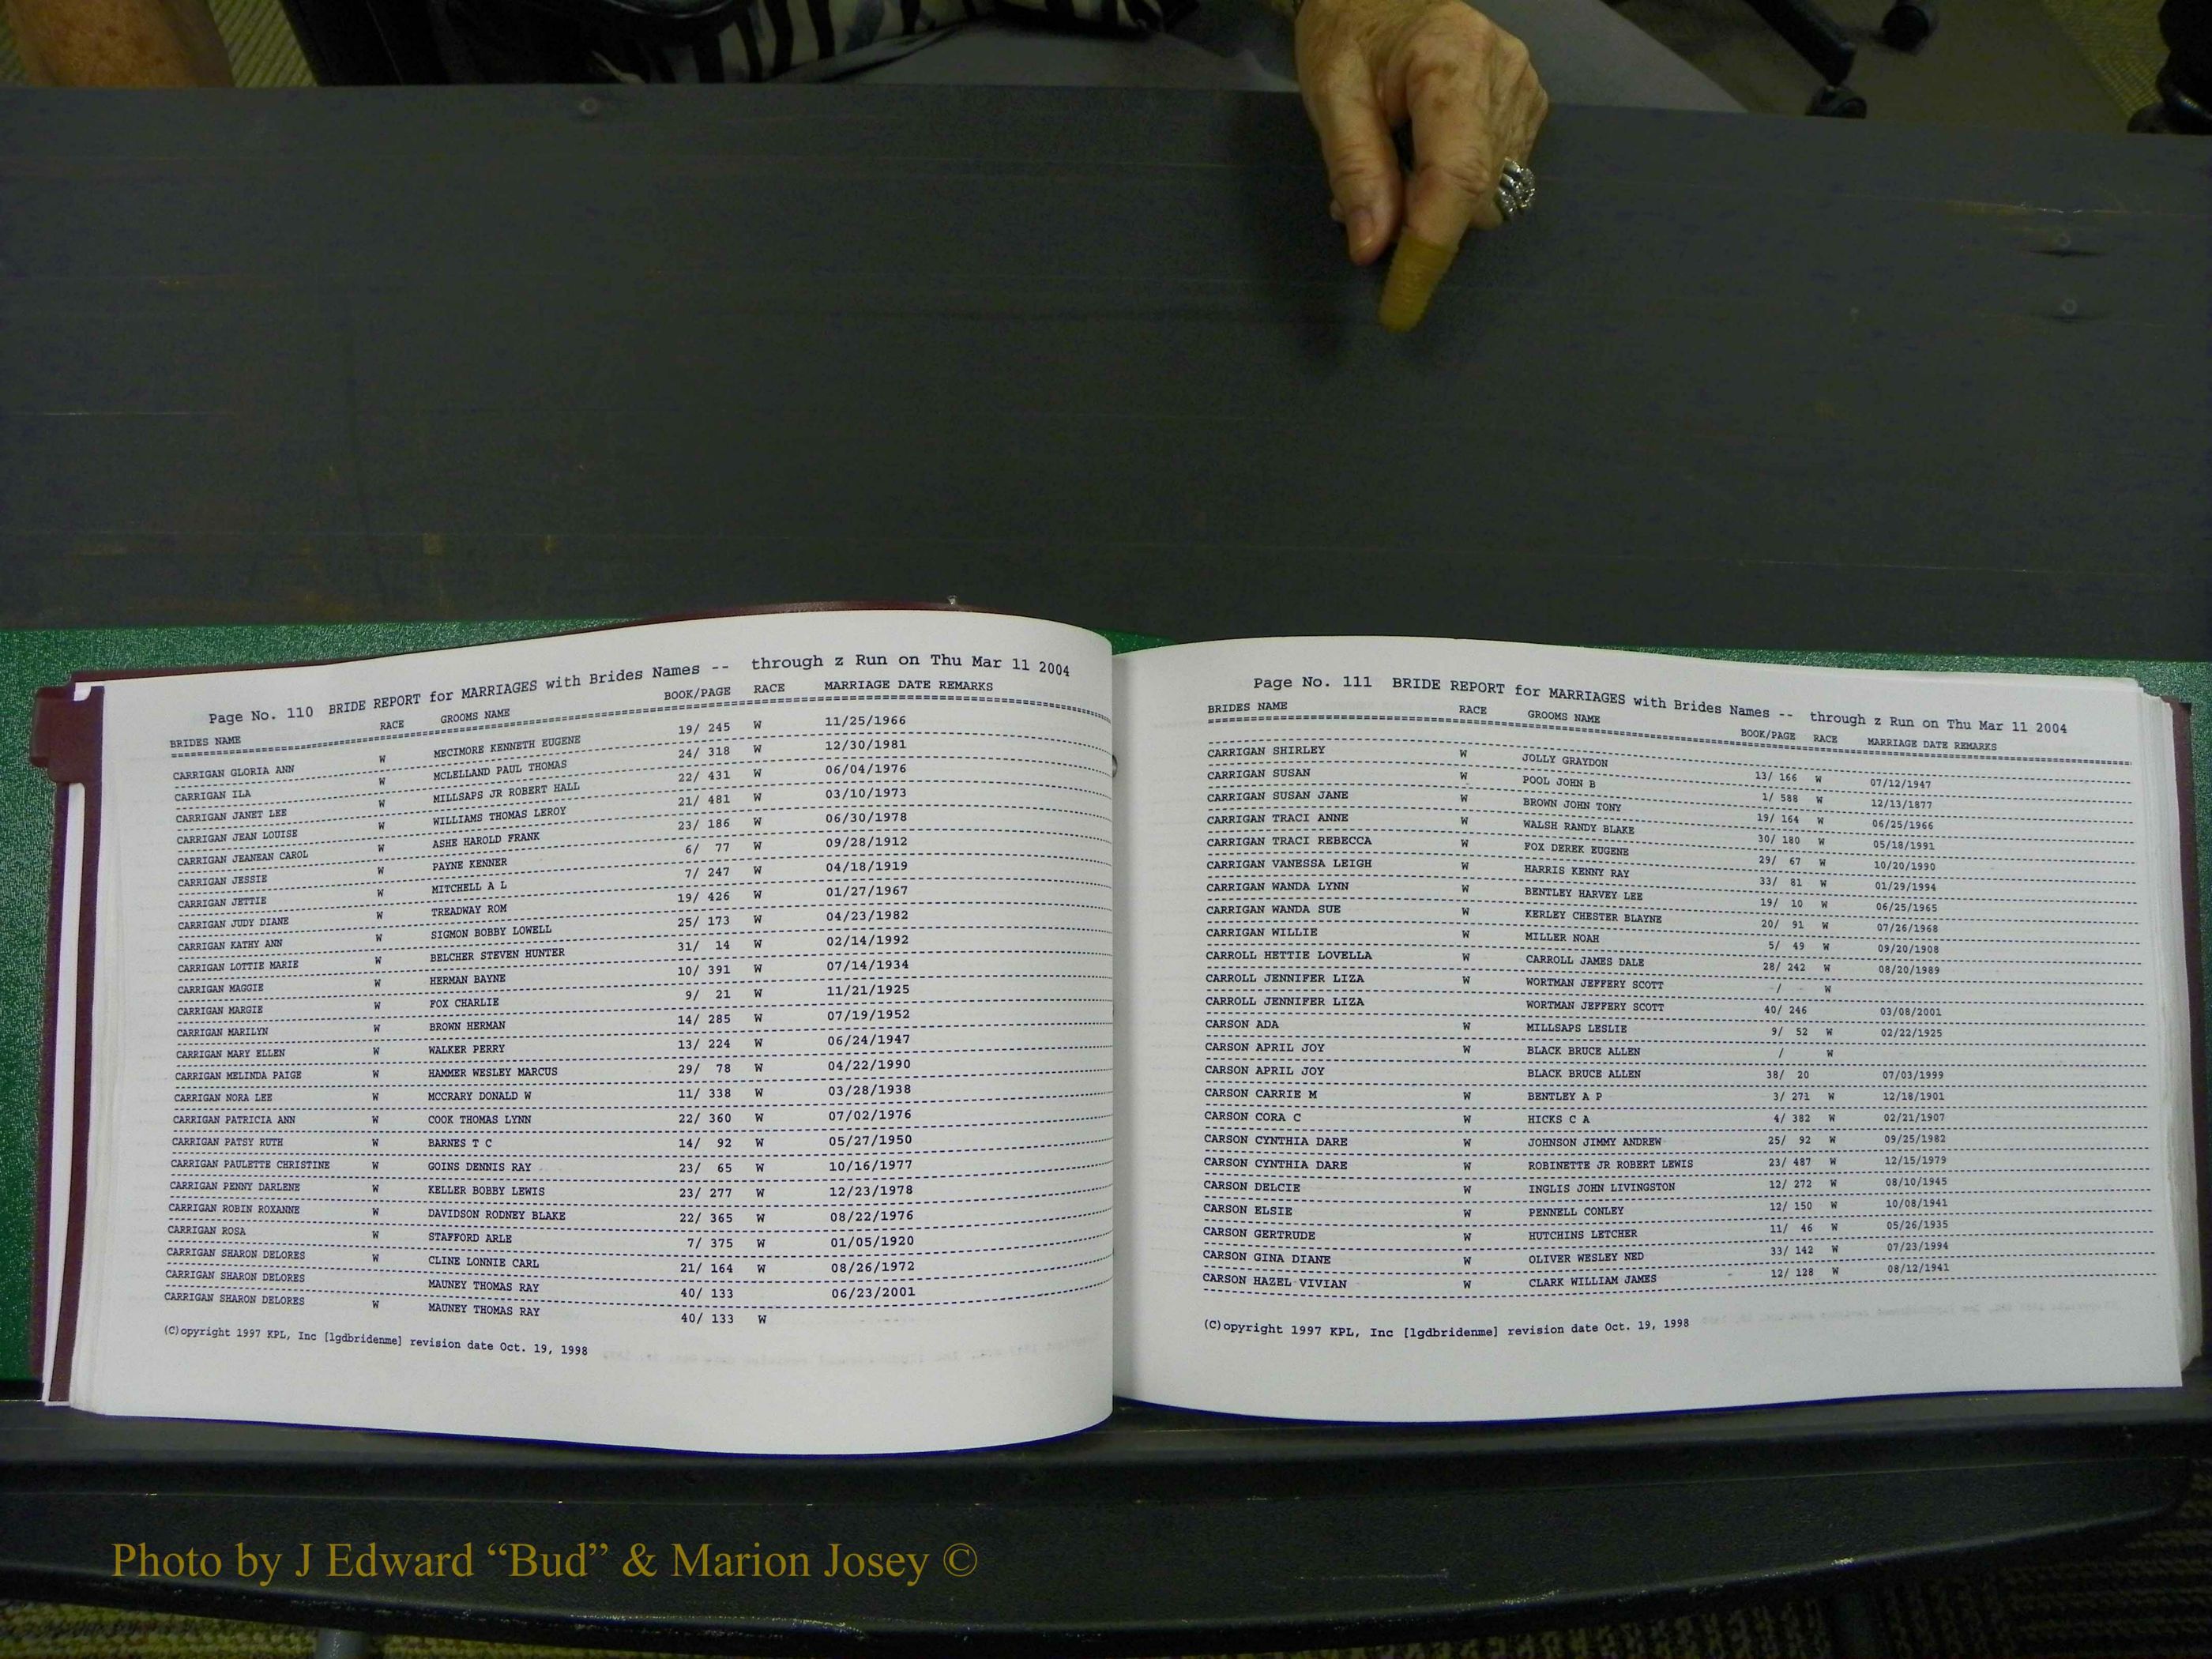 Page No. 110 BRIDE REPORT for MARRIAGES with Brides Names -- through z Run on Thu Mar 11 2004
BRIDES NAME RACE GROOMS NAME BOOK/PAGE RACE MARRIAGE DATE REMARKS
CARRIGAN GLORIA ANN W MECIMORE KENNETH EUGENE 19/ 245 W 11/25/1966
CARRIGAN ILA W MCLELLAND PAUL THOMAS 24/ 318 W 12/30/1981
CARRIGAN JANET LEE W MILLSAPS JR ROBERT HALL 22/ 431 W 06/04/1976
CARRIGAN JEAN LOUISE W WILLIAMS THOMAS LEROY 21/ 481 W 03/10/1973
CARRIGAN JEANEAN CAROL W ASHE HAROLD FRANK 23/ 186 W 06/30/1978
CARRIGAN JESSIE W PAYNE KENNER 6/ 77 W 09/28/1912
CARRIGAN JETTIE W MITCHELL A L 7/ 247 W 04/18/1919
CARRIGAN JUDY DIANE W TREADWAY ROM 19/ 426 W 01/27/1967
CARRIGAN KATHY ANN W SIGMON BOBBY LOWELL 25/ 173 W 04/23/1982
CARRIGAN LOTTIE MARIE W BELCHER STEVEN HUNTER 31/ 14 W 02/14/1992
CARRIGAN MAGGIE W HERMAN BAYNE 10/ 391 W 07/14/1934
CARRIGAN MARGIE W FOX CHARLIE 9/ 21 W 11/21/1925
CARRIGAN MARILYN W BROWN HERMAN 14/ 285 W 07/19/1952
CARRIGAN MARY ELLEN W WALKER PERRY 13/ 224 W 06/24/1947
CARRIGAN MELINDA PAIGE W HAMMER WESLEY MARCUS 29/ 78 W 04/22/1990
CARRIGAN NORA LEE W MCCRARY DONALD W 11/ 338 W 03/28/1938
CARRIGAN PATRICIA ANN W COOK THOMAS LYNN 22/ 360 W 07/02/1976
CARRIGAN PATSY RUTH W BARNES T C 14/ 92 W 05/27/1950
CARRIGAN PAULETTE CHRISTINE W GOINS DENNIS RAY 23/ 65 W 10/16/1977
CARRIGAN PENNY DARLENE W KELLER BOBBY LEWIS 23/ 277 W 12/23/1978
CARRIGAN ROBIN ROXANNE W DAVIDSON RODNEY BLAKE 22/ 365 W 08/22/1976
CARRIGAN ROSA W STAFFORD ARLE 7/ 375 W 01/05/1920
CARRIGAN SHARON DELORES W CLINE LONNIE CARL 21/ 164 W 08/26/1972
CARRIGAN SHARON DELORES MAUNEY THOMAS RAY 40/ 133 06/23/2001
CARRIGAN SHARON DELORES W MAUNEY THOMAS RAY 40/ 133 W
(C)opyright 1997 KPL, Inc [lgdbridenme] revision date Oct. 19, 1998
Page No. 111 BRIDE REPORT for MARRIAGES with Brides Names -- through z Run on Thu Mar 11 2004
BRIDES NAME RACE GROOMS NAME BOOK/PAGE RACE MARRIAGE DATE REMARKS
CARRIGAN SHIRLEY W JOLLY GRAYDON 13/ 166 W 07/12/1947
CARRIGAN SUSAN W POOL JOHN B 1/ 588 W 12/13/1877
CARRIGAN SUSAN JANE W BROWN JOHN TONY 19/ 164 W 06/25/1966
CARRIGAN TRACI ANNE W WALSH RANDY BLAKE 30/ 180 W 05/18/1991
CARRIGAN TRACI REBECCA W FOX DEREK EUGENE 29/ 67 W 10/20/1990
CARRIGAN VANESSA LEIGH W HARRIS KENNY RAY 33/ 81 W 01/29/1994
CARRIGAN WANDA LYNN W BENTLEY HARVEY LEE 19/ 10 W 06/25/1965
CARRIGAN WANDA SUE W KERLEY CHESTER BLAYNE 20/ 91 W 07/26/1968
CARRIGAN WILLIE W MILLER NOAH 5/ 49 W 09/20/1908
CARROLL HETTIE LOVELLA W CARROLL JAMES DALE 28/ 242 W 08/20/1989
CARROLL JENNIFER LIZA W WORTMAN JEFFERY SCOTT / W
CARROLL JENNIFER LIZA WORTMAN JEFFERY SCOTT 40/ 246 03/08/2001
CARSON ADA W MILLSAPS LESLIE 9/ 52 W 02/22/1925
CARSON APRIL JOY W BLACK BRUCE ALLEN / W
CARSON APRIL JOY BLACK BRUCE ALLEN 38/ 20 07/03/1999
CARSON CARRIE M W BENTLEY A P 3/ 271 W 12/18/1901
CARSON CORA C W HICKS C A 4/ 382 W 02/21/1907
CARSON CYNTHIA DARE W JOHNSON JIMMY ANDREW 25/ 92 W 09/25/1982
CARSON CYNTHIA DARE W ROBINETTE JR ROBERT LEWIS 23/ 487 W 12/15/1979
CARSON DELCIE W INGLIS JOHN LIVINGSTON 12/ 272 W 08/10/1945
CARSON ELSIE W PENNELL CONLEY 12/ 150 W 10/08/1941
CARSON GERTRUDE W HUTCHINS LETCHER 11/ 46 W 05/26/1935
CARSON GINA DIANE W OLIVER WESLEY NED 33/ 142 W 07/23/1994
CARSON HAZEL VIVIAN W CLARK WILLIAM JAMES 12/ 128 W 08/12/1941
(C)opyright 1997 KPL, Inc [lgdbridenme] revision date Oct. 19, 1998
Photo by J Edward “Bud” & Marion Josey ©